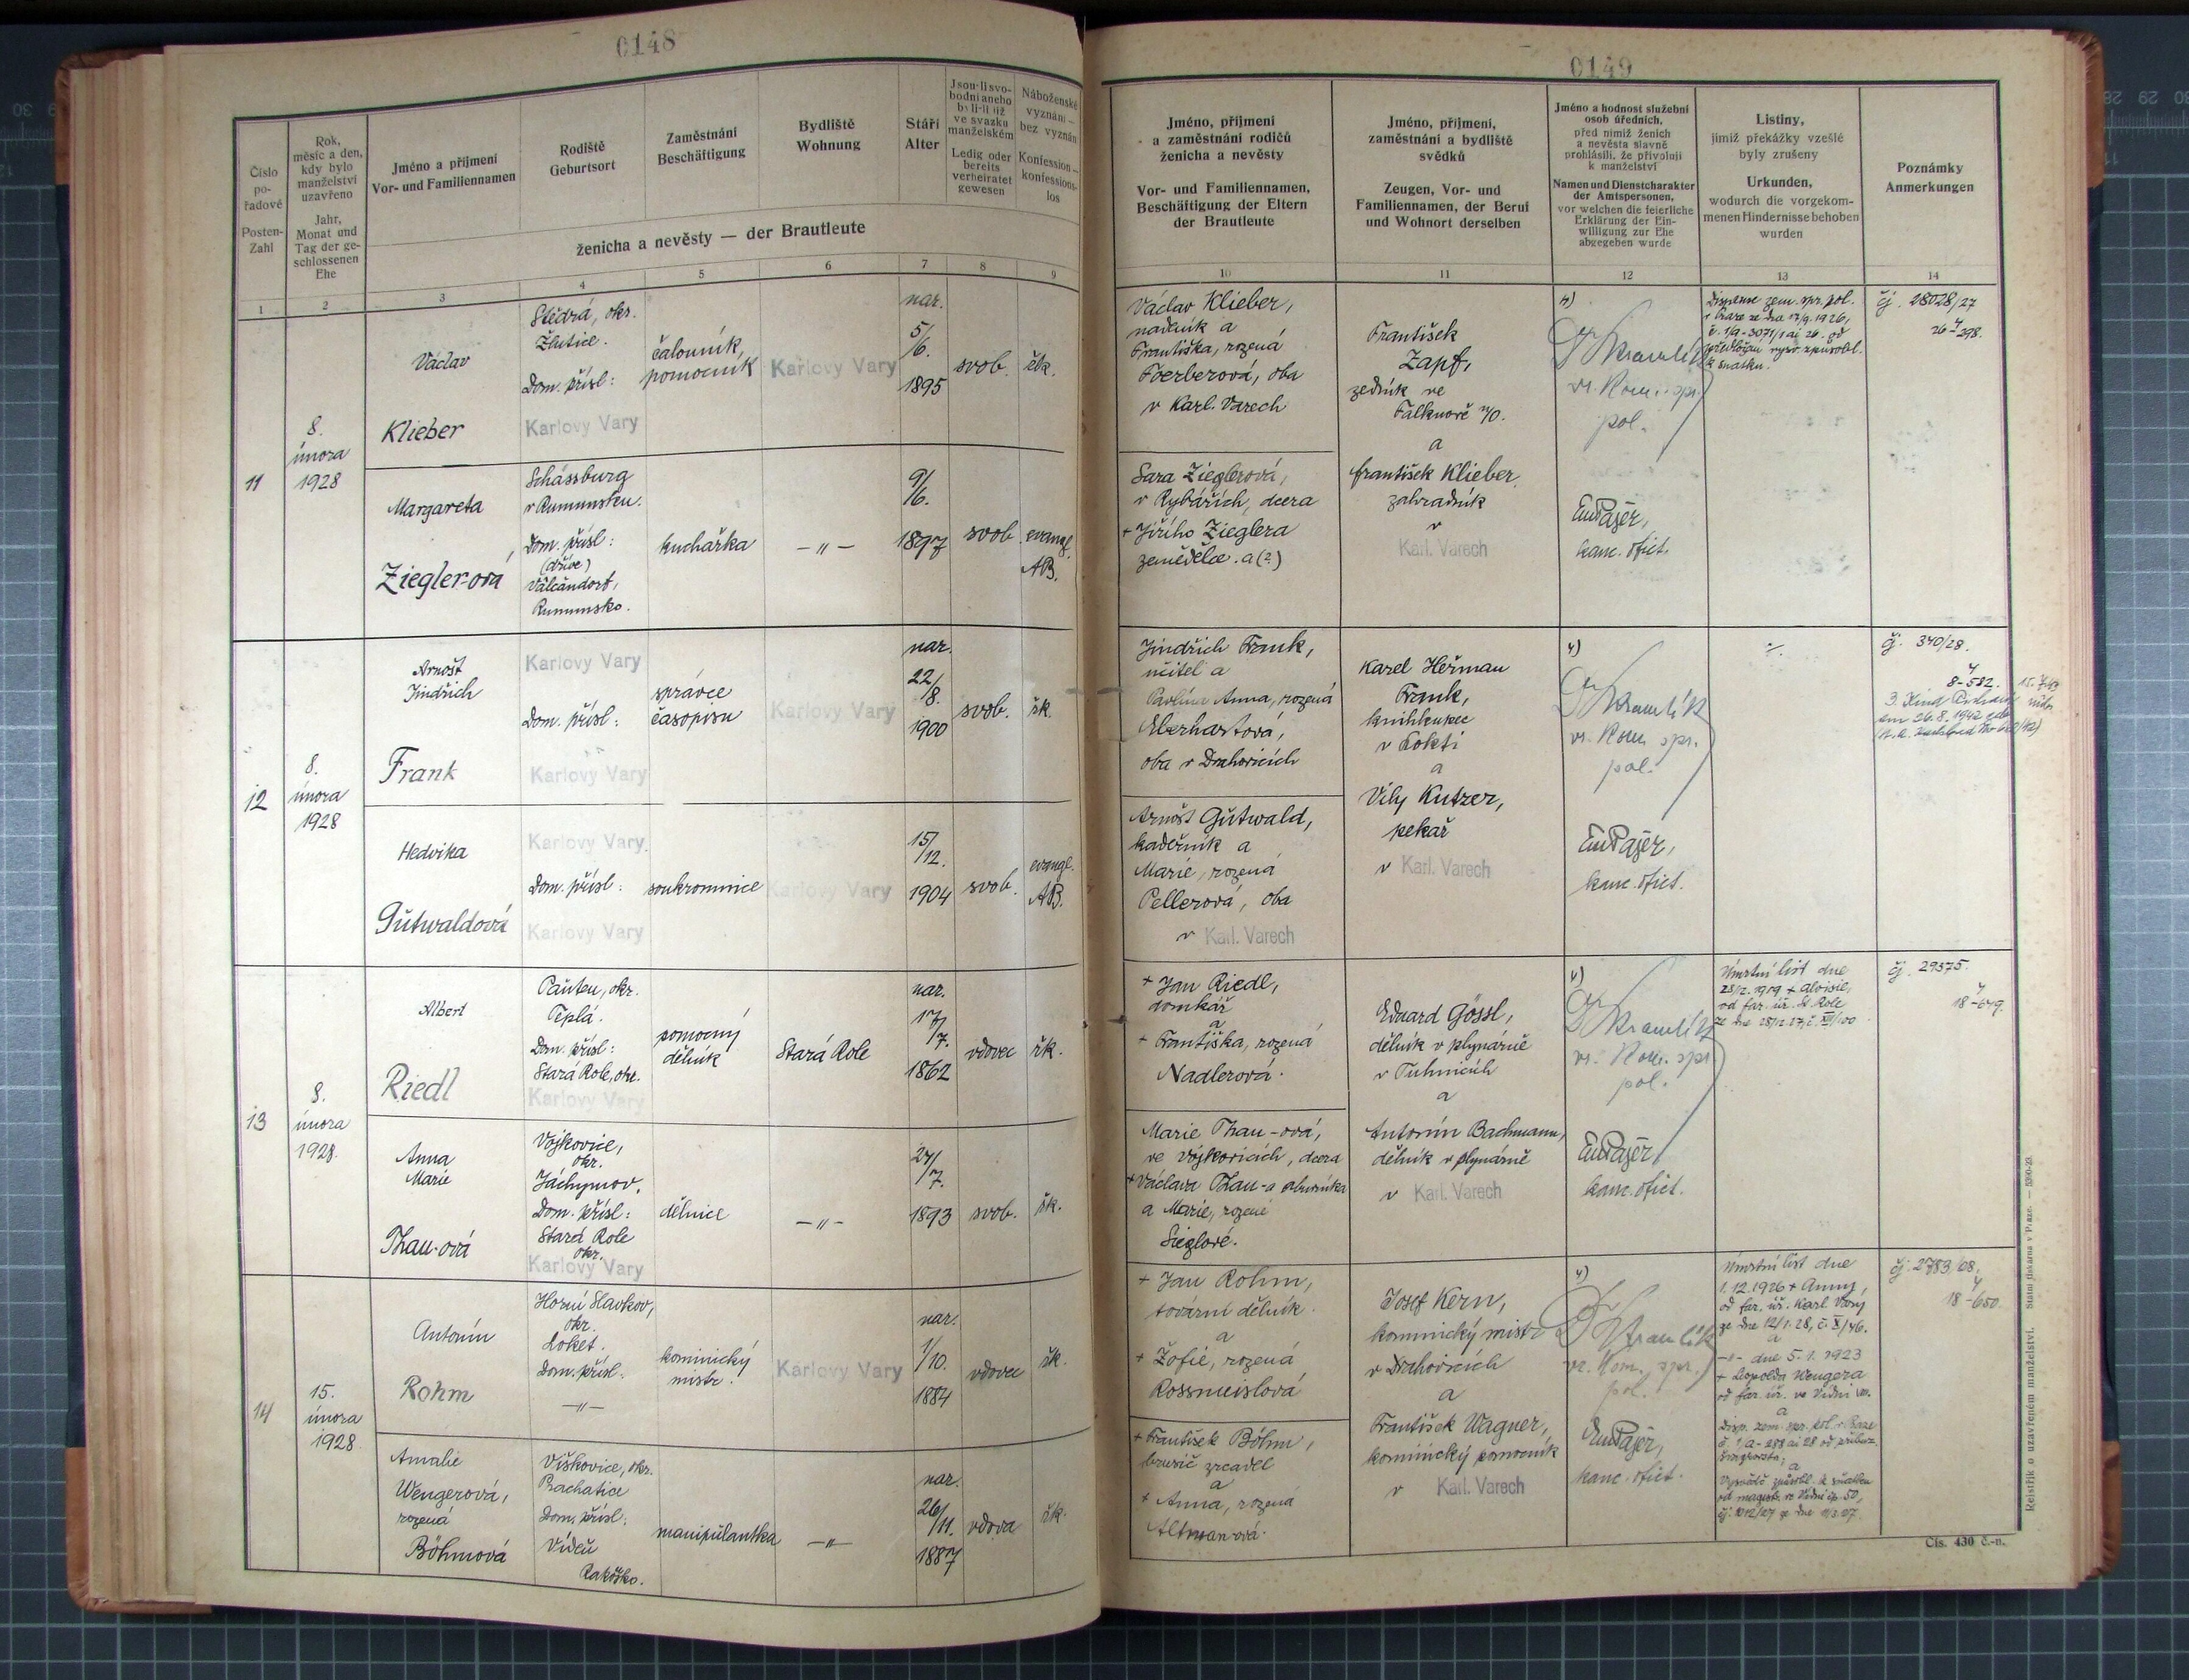 0148
Číslo pořadové
Posten-Zahl
Rok, měsíc a den, kdy bylo manželství uzavřeno
Jahr, Monat und Tag der geschlossenen Ehe
Jméno a příjmení
Vor- und Familiennamen
Rodiště
Geburtsort
Zaměstnání
Beschäftigung
Bydliště
Wohnung
Stáří
Alter
Jsou-li svobodni aneb byli-li již ve svazku manželském
Ledig oder bereits verheiratet gewesen
Náboženské vyznání – bez vyznán
Konfession – konfessionslos
ženicha a nevěsty — der Brautleute
1 2 3 4 5 6 7 8 9
11
8.
února
1928
Václav
Klieber
Štědrá, okr.
Žlutice.
Dom. přísl:
Karlovy Vary
čalouník,
pomocník
Karlovy Vary
nar.
5/6.
1895
svob.
řk.
Margareta
Ziegler-ová
Schässburg
v Rumunsku.
Dom. přísl:
(dříve)
Välcåndorf,
Rumunsko.
kuchařka
—"—
9/6.
1897
svob.
evangl.
AB.
12
8.
února
1928
Arnošt
Jindřich
Frank
Karlovy Vary
Dom. přísl:
Karlovy Vary
správce
časopisu
Karlovy Vary
nar.
22/8.
1900
svob.
řk.
Hedvika
Gütwaldová
Karlovy Vary.
Dom. přísl:
Karlovy Vary
soukromnice
Karlovy Vary
15/12.
1904
svob.
evangl.
AB.
13
8.
února
1928.
Albert
Riedl
Pauten, okr.
Teplá.
Dom. přísl:
Stará Role, okr.
Karlovy Vary
pomocný
dělník
Stará Role
nar.
17/7.
1862
vdovec
řk.
Anna
Marie
Thau-ová
Vojkovice,
okr.
Jáchymov.
Dom. přísl:
Stará Role
okr.
Karlovy Vary
dělnice
—"—
27/7.
1893
svob.
řk.
14
15.
února
1928
Antonín
Rohm
Horní Slavkov,
okr.
Loket.
Dom. přísl:
—"—
kominický
mistr.
Karlovy Vary
nar.
1/10.
1884
vdovec
řk.
Amalie
Wengerová,
rozená
Böhmová
Viškovice, okr.
Prachatice
Dom. přísl:
Vídeň
Rakúsko.
manipulantka
—"—
nar.
26/11.
1887
vdova
řk.
0149
Jméno, příjmení a zaměstnání rodičů ženicha a nevěsty
Vor- und Familiennamen, Beschäftigung der Eltern der Brautleute
Jméno, příjmení, zaměstnání a bydliště svědků
Zeugen, Vor- und Familiennamen, der Beruf und Wohnort derselben
Jméno a hodnost služební osob úředních, před nimiž ženich a nevěsta slavně prohlásili, že přivolují k manželství
Namen und Dienstcharakter der Amtspersonen, vor welchen die feierliche Erklärung der Einwilligung zur Ehe abgegeben wurde
Listiny, jimiž překážky vzešlé byly zrušeny
Urkunden, wodurch die vorgekommenen Hindernisse behoben wurden
Poznámky
Anmerkungen
10 11 12 13 14
Václav Klieber,
Františka, rozená
Foerberová, oba
v Karl. Varech
František
Zapf,
zedník ve
Falknově n/O.
a
František Klieber,
zahradník
v
Karl. Varech
Dr Kramlík
vr. Kom. spr.
pol.
Em Pajer,
kanc. ofict.
Dispense zem. spr. pol.
v Praze ze dne 17/9. 1926,
k sňatku.
čj. 28028/27
26-298.
Sara Zieglerová,
v Rybářích, dcera
+ Jiřího Zieglera
zemědělce. a (?)
Jindřich Frank,
učitel a
Pavlína Anna, rozená
Eberhartová,
oba v Drahovicích
Karel Heřman
Frank,
knihkupec
v Lokti
a
Vily Kutzer,
pekař
v Karl. Varech
Dr Kramlík
vr. Kom. spr.
pol.
Em Pajer,
kanc. ofict.
čj. 340/28.
8-582.
Arnošt Gütwald,
kadeřník a
Marie, rozená
Pellerová, oba
v Karl. Varech
+ Jan Riedl,
domkář
a
+ Františka, rozená
Nadlerová.
Eduard Gössl,
dělník v plynárně
v Tuhnicích
a
Antonín Bachmann,
dělník v plynárně
v Karl. Varech
Dr Kramlík
vr. Kom. spr.
pol.
Em Pajer,
kanc. ofict.
Úmrtní list dne
28/2. 1919 + Aloisie,
od far. úř. St. Role
čj. 29375.
18-649.
Marie Thau-ová,
ve Vojkovicích, dcera
+ Václava Thau-a obuvníka
a Marie, rozené
Sieglové.
+ Jan Rohm,
tovární dělník.
a
+ Žofie, rozená
Rossmeislová
Josef Kern,
kominický mistr
v Drahovicích
a
František Wagner,
kominický pomocník
v Karl. Varech
Dr Kramlík
vr. Kom. spr.
pol.
Em Pajer,
kanc. ofict.
Úmrtní list dne
1.12.1926 + Anny,
od far. úř. Karl. Vary
ze dne 12/1. 28, č. X/46.
a
—"— dne 5. 1. 1923
+ Leopolda Wengera
od far. úř. ve Vídni VIII.
a
Disp. zem. spr. pol. v Praze
čj. 2783/08,
18-650.
+ František Böhm,
brusič zrcadel
a
+ Anna, rozená
Altman-ová.
Rejstřík o uzavřeném manželství. Státní tiskárna v Praze. — 5360-23.
Čís. 430 č.-n.